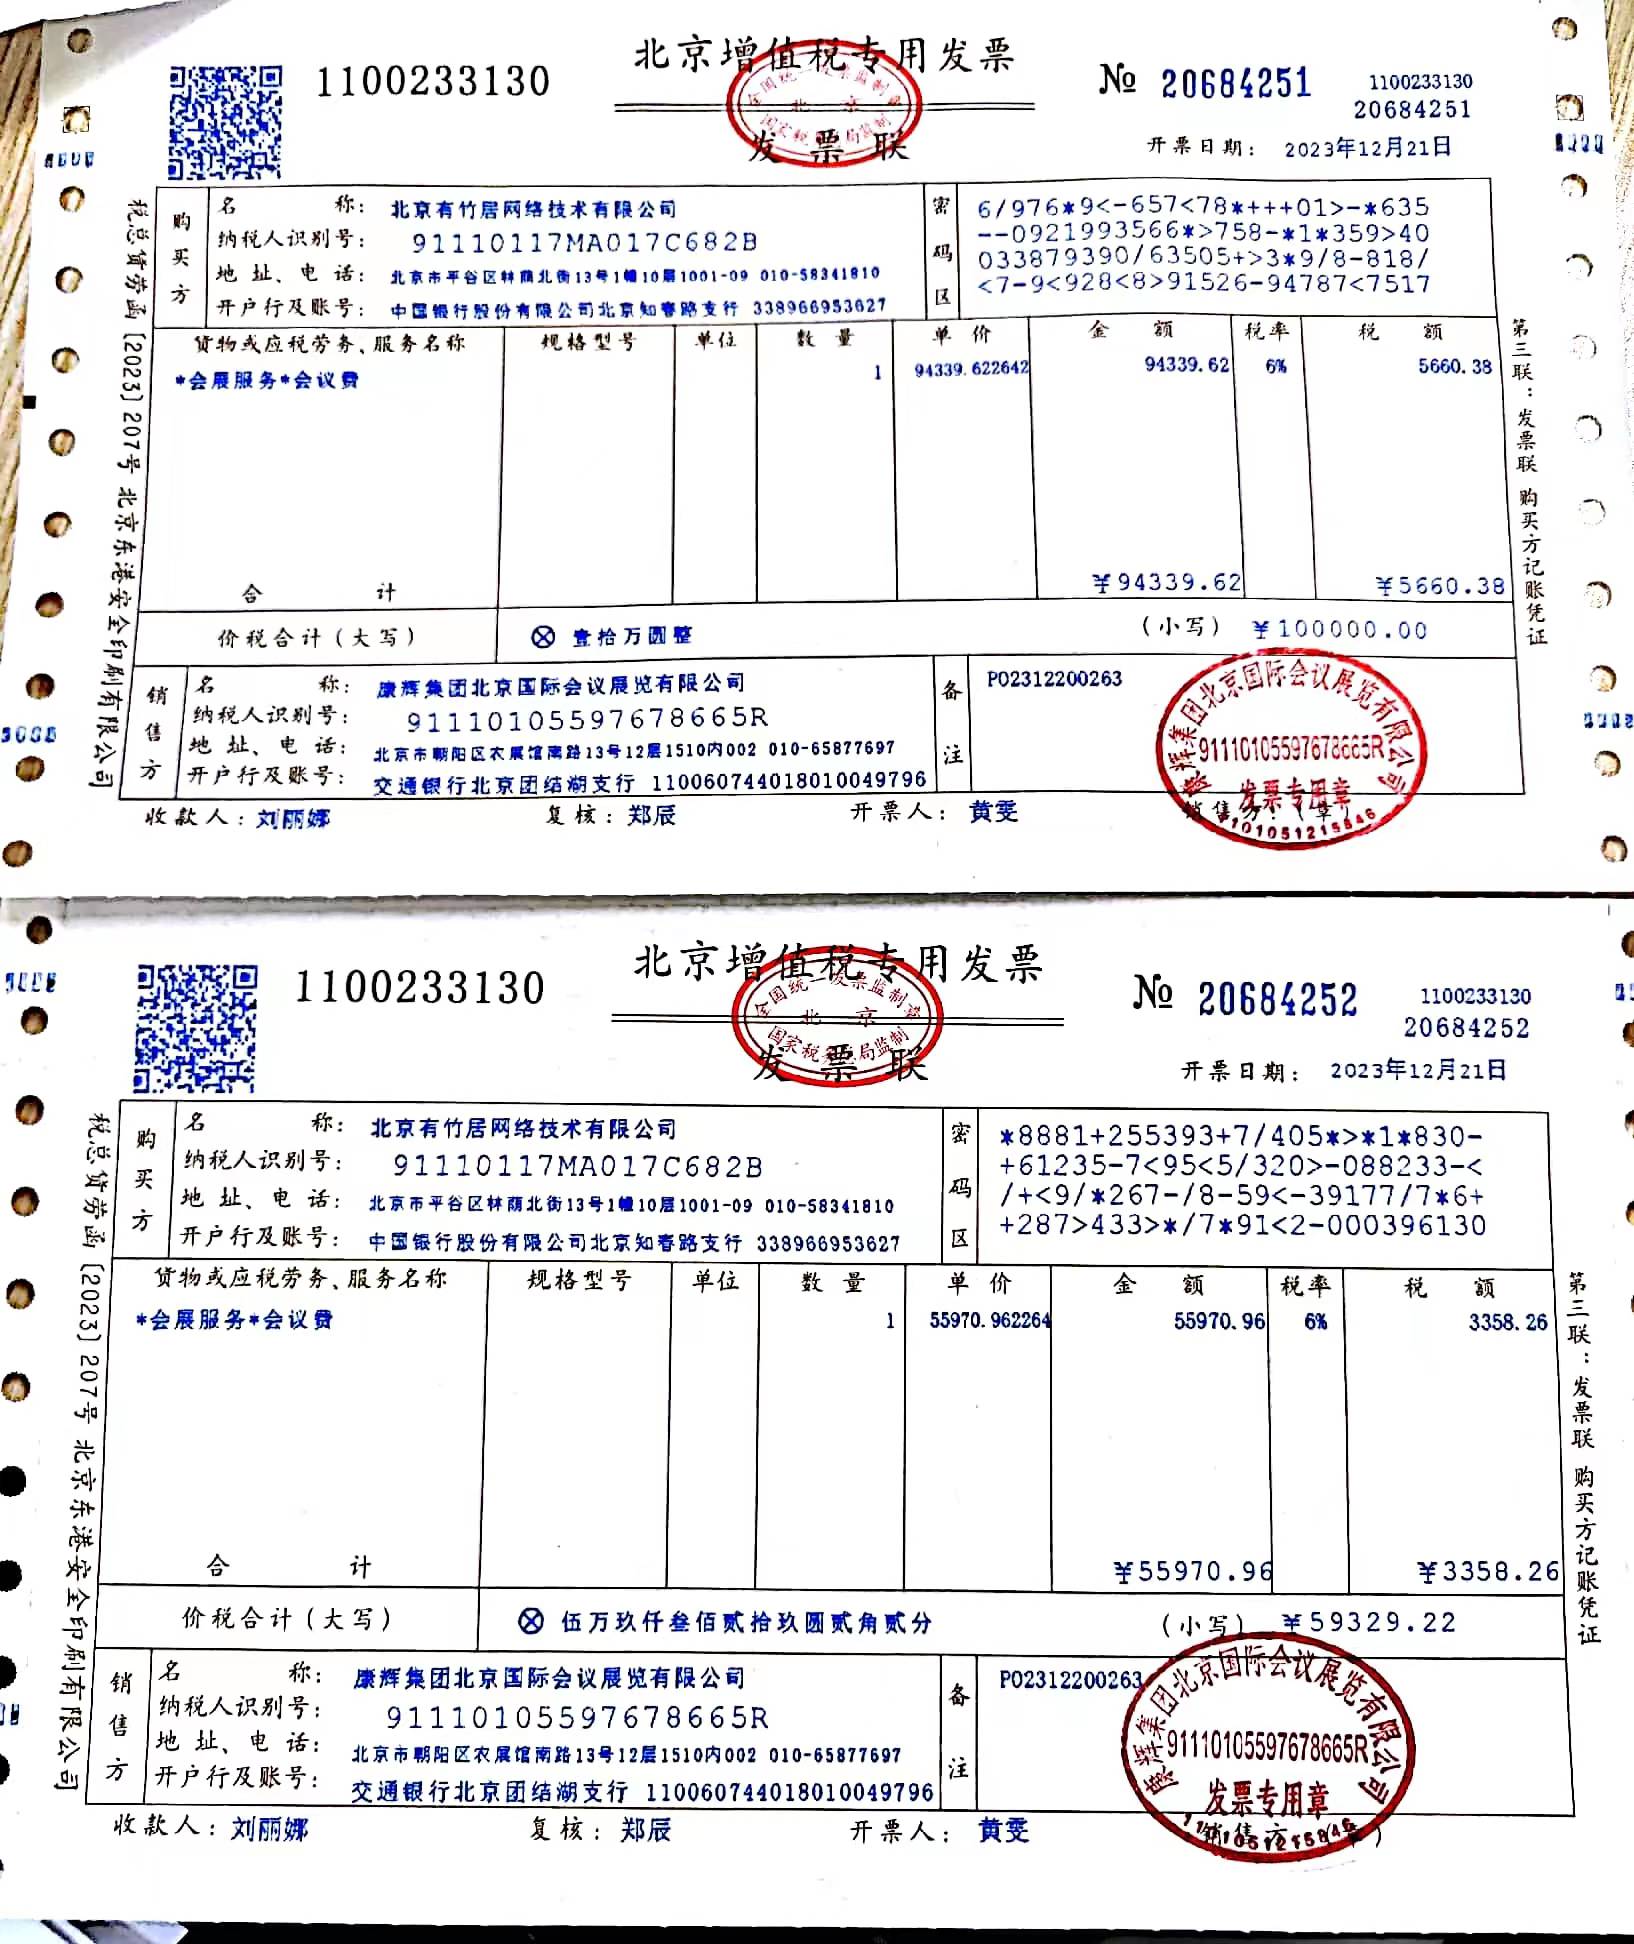 北京增值税专用发票
1100233130
№ 20684251
1100233130
20684251
全国统一发票监制章
北京
国家税务总局监制
发票联
开票日期： 2023年12月21日
税总货劳函〔2023〕207号 北京东港安全印刷有限公司
购买方
名 称： 北京有竹居网络技术有限公司
纳税人识别号： 91110117MA017C682B
地 址、电 话： 北京市平谷区林荫北街13号1幢10层1001-09 010-58341810
开户行及账号： 中国银行股份有限公司北京知春路支行 338966953627
密码区
6/976*9<-657<78*+++01>-*635
--0921993566*>758-*1*359>40
033879390/63505+>3*9/8-818/
<7-9<928<8>91526-94787<7517
货物或应税劳务、服务名称 规格型号 单位 数 量 单 价 金 额 税率 税 额
*会展服务*会议费 1 94339.622642 94339.62 6% 5660.38
合 计 ￥94339.62 ￥5660.38
价税合计（大写） ⊗ 壹拾万圆整 （小写） ￥100000.00
销售方
名 称： 康辉集团北京国际会议展览有限公司
纳税人识别号： 91110105597678665R
地 址、电 话： 北京市朝阳区农展馆南路13号12层1510内002 010-65877697
开户行及账号： 交通银行北京团结湖支行 110060744018010049796
备注
PO2312200263
康辉集团北京国际会议展览有限公司
91110105597678665R
发票专用章
1101051215846
收款人：刘丽娜 复核：郑辰 开票人：黄雯 销售方：（章）
第三联：发票联 购买方记账凭证
北京增值税专用发票
1100233130
№ 20684252
1100233130
20684252
全国统一发票监制章
北京
国家税务总局监制
发票联
开票日期： 2023年12月21日
税总货劳函〔2023〕207号 北京东港安全印刷有限公司
购买方
名 称： 北京有竹居网络技术有限公司
纳税人识别号： 91110117MA017C682B
地 址、电 话： 北京市平谷区林荫北街13号1幢10层1001-09 010-58341810
开户行及账号： 中国银行股份有限公司北京知春路支行 338966953627
密码区
*8881+255393+7/405*>*1*830-
+61235-7<95<5/320>-088233-<
/+<9/*267-/8-59<-39177/7*6+
+287>433>*/7*91<2-000396130
货物或应税劳务、服务名称 规格型号 单位 数 量 单 价 金 额 税率 税 额
*会展服务*会议费 1 55970.962264 55970.96 6% 3358.26
合 计 ￥55970.96 ￥3358.26
价税合计（大写） ⊗ 伍万玖仟叁佰贰拾玖圆贰角贰分 （小写） ￥59329.22
销售方
名 称： 康辉集团北京国际会议展览有限公司
纳税人识别号： 91110105597678665R
地 址、电 话： 北京市朝阳区农展馆南路13号12层1510内002 010-65877697
开户行及账号： 交通银行北京团结湖支行 110060744018010049796
备注
PO2312200263
康辉集团北京国际会议展览有限公司
91110105597678665R
发票专用章
1101051215846
收款人：刘丽娜 复核：郑辰 开票人：黄雯 销售方：（章）
第三联：发票联 购买方记账凭证